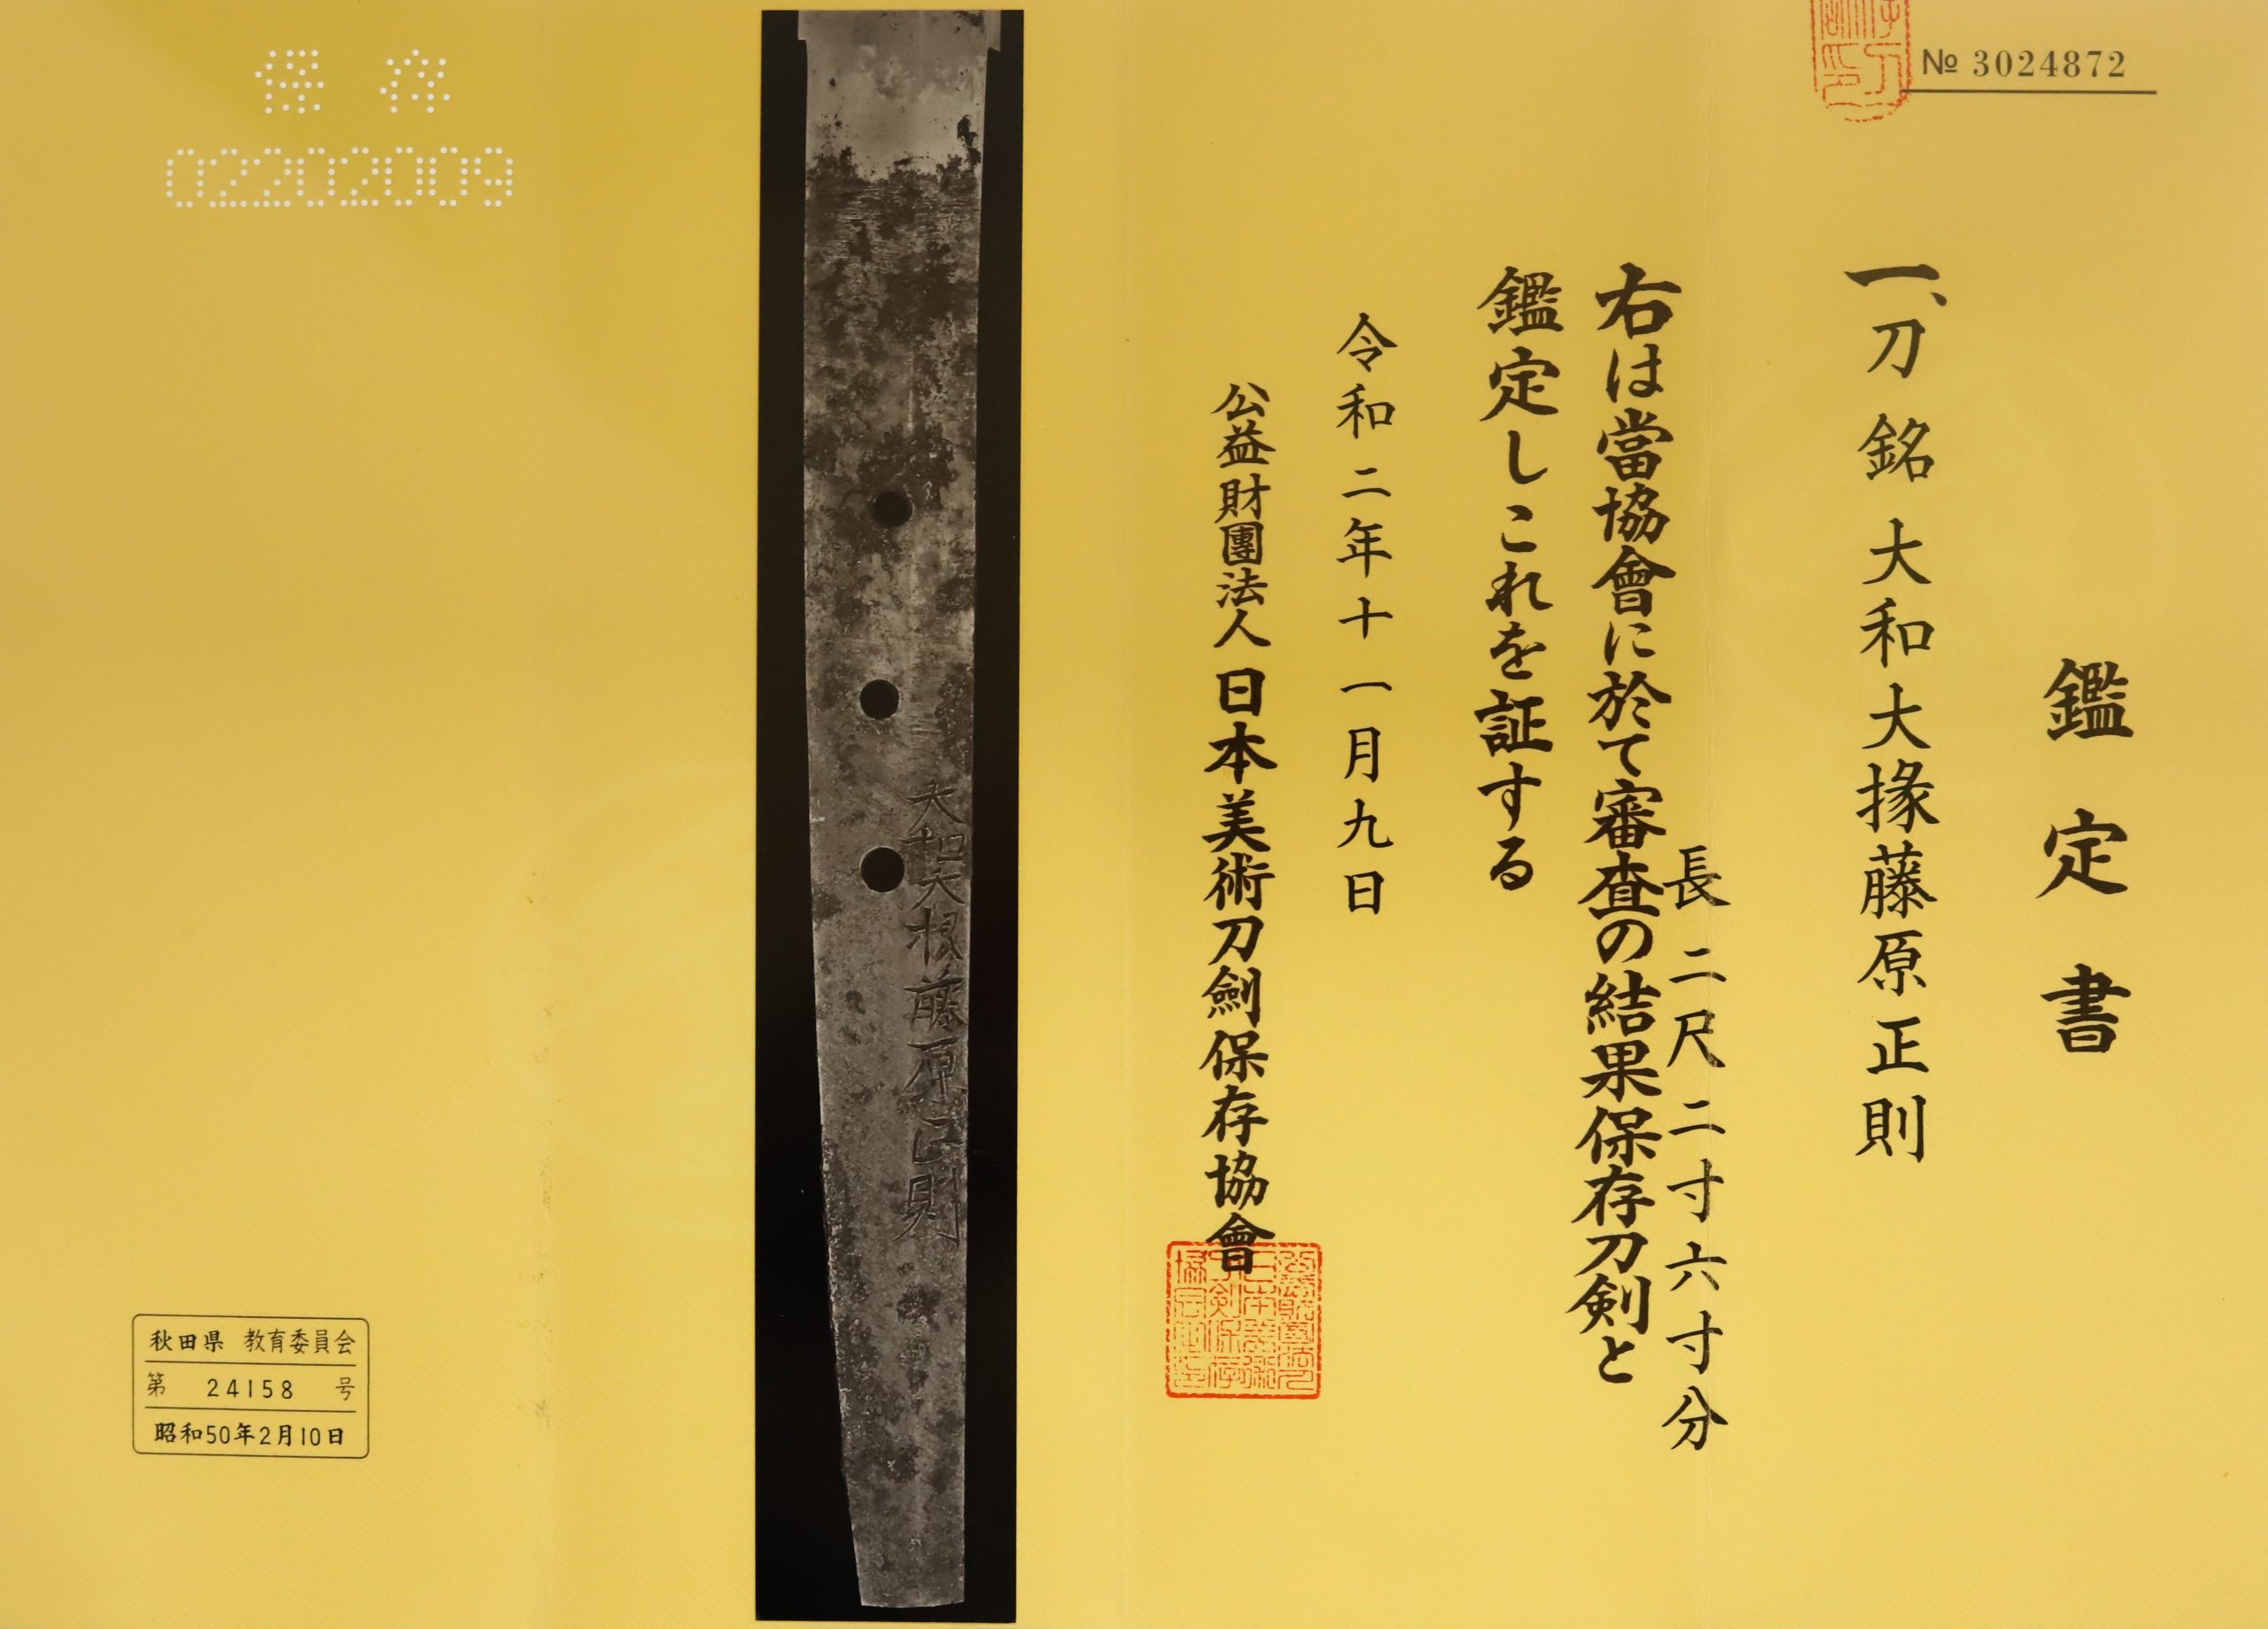 № 3024872
鑑定書
一、刀 銘 大和大掾藤原正則
長 二尺二寸六寸分
右は當協會に於て審査の結果保存刀剣と
鑑定しこれを証する
令和二年十一月九日
公益財團法人 日本美術刀劍保存協會
大和大掾藤原正則
保存
02202009
秋田県 教育委員会
第 24158 号
昭和50年2月10日